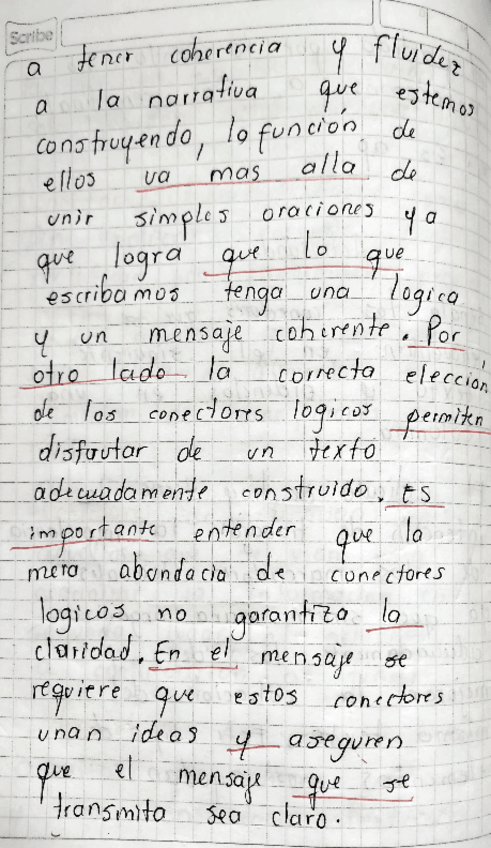 Scribe
a tener coherencia y fluidez
a la narrativa que estemos
construyendo, la función de
ellos va mas alla de
unir simples oraciones ya
que logra que lo que
escribamos tenga una logica
y un mensaje coherente. Por
otro lado la correcta elección
de los conectores logicos permiten
disfrutar de un texto
adecuadamente construido. Es
importante entender que la
mera abundacia de conectores
logicos no garantiza la
claridad. En el mensaje se
requiere que estos conectores
unan ideas y aseguren
que el mensaje que se
transmita sea claro.